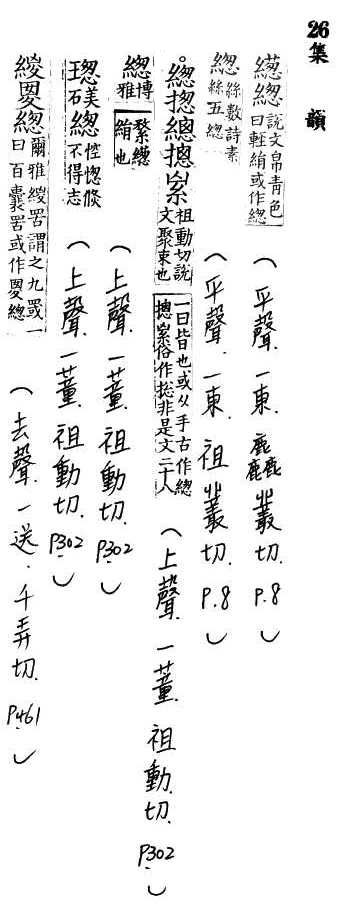 26集韻
繱緫說文帛青色一曰輕絹或作緫(平聲.一東.麤叢切.P.8)
緫絲數詩素絲五緫(平聲.一東.祖叢切.P.8)
。緫揔總摠祖動切說文聚束也一曰皆也或从手古作緫摠俗作捴非是文二十八(上聲.一董.祖動.切.P302)
緫博雅緫絹也(上聲.一董.祖動切.P302.)
美石緫惚倏不得志(上聲.一董.祖動切.P302.)
緵緫爾雅緵罟謂之九罭一曰百囊罟或作緫(去聲.一送.千弄切.P461.)